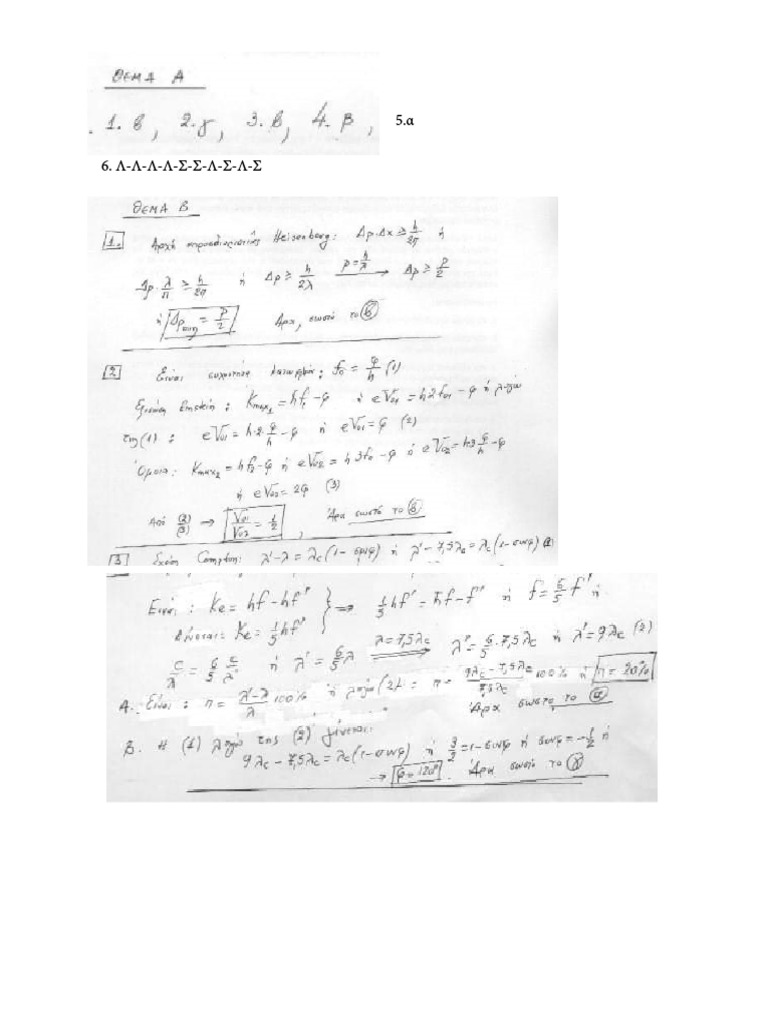 ΘΕΜΑ Α
1. β, 2. γ, 3. β, 4. β, 5.α
6. Λ-Λ-Λ-Λ-Σ-Σ-Λ-Σ-Λ-Σ
ΘΕΜΑ Β
1. Αρχή απροσδιοριστίας Heisenberg: Δp·Δx ≥ h/2π ή
Δp·λ/π ≥ h/2π ή Δp ≥ h/2λ p=h/λ → Δp ≥ p/2
ή Δp = p/2 Άρα, σωστό το β
2 Είναι συχνότητα κατωφλίου: f₀ = φ/h (1)
Εξίσωση Einstein: Kmax₁ = hf₁-φ ή eV₀₁ = h2f₀₁-φ ή λόγω
της (1): eV₀₁ = h·2·φ/h-φ ή eV₀₁ = φ (2)
Όμοια: Kmax₂ = hf₂-φ ή eV₀₂ = h3f₀-φ ή eV₀₂ = h3φ/h-φ
ή eV₀₂ = 2φ (3)
Από (2)/(3) → V₀₁/V₀₂ = 1/2, Άρα σωστό το β
3 Σχέση Compton: λ'-λ = λc(1-συνφ) ή λ'-7,5λc = λc(1-συνφ) (1)
Είναι: Ke = hf-hf'
Δίνεται: Ke = 1/5 hf' } ⟹ 1/5 hf' = hf-f' ή f = 6/5 f' ή
c/λ = 6/5 c/λ' ή λ' = 6/5 λ λ=7,5λc ⟹ λ' = 6/5·7,5λc ή λ' = 9λc (2)
Α. Είναι: π = λ'-λ/λ 100% ή λόγω (2): π = 9λc-7,5λc/7,5λc 100% ή π = 20%
Άρα σωστό το α
Β. Η (1) λόγω της (2) γίνεται:
9λc-7,5λc = λc(1-συνφ) ή 3/2 = 1-συνφ ή συνφ = -1/2 ή
→ φ = 120° . Άρα σωστό το γ